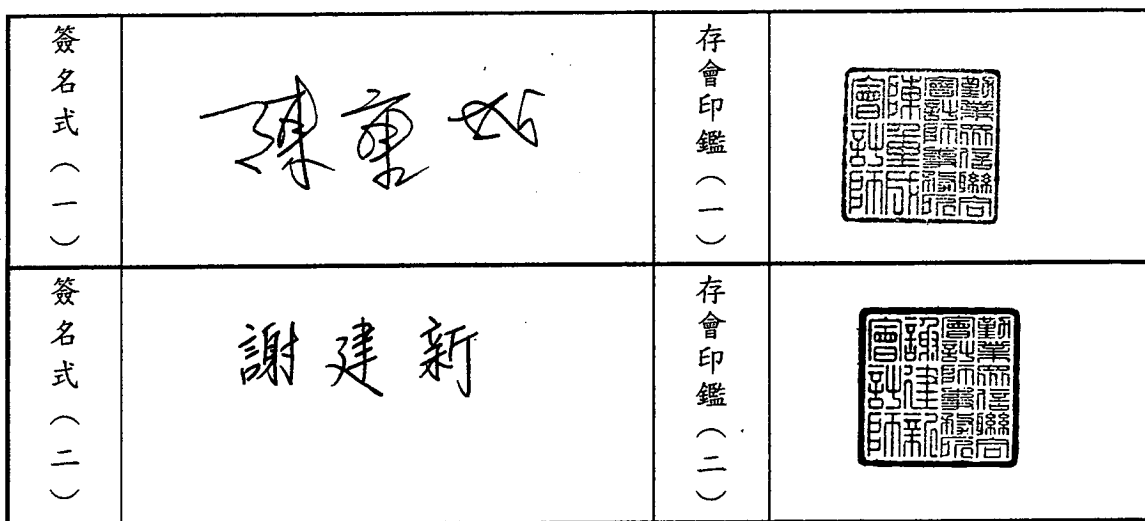 簽名式(一)
陳重成
存會印鑑(一)
勤業眾信聯合
會計師事務所
陳重成
會計師
簽名式(二)
謝建新
存會印鑑(二)
勤業眾信聯合
會計師事務所
謝建新
會計師